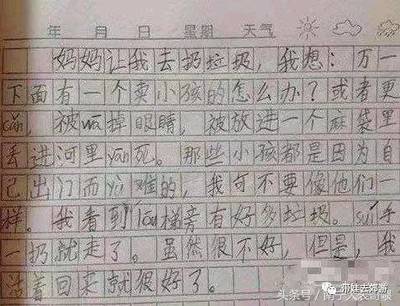 年 月 日 星期 天气
妈妈让我去扔垃圾,我想:万一
下面有一个卖小孩的怎么办?或者更
cǎn,被wā掉眼睛,被放进一个麻袋里
丢进河里yān死。那些小孩都是因为自
己出门而yù难的,我可不要像他们一
样。我看到lóu梯旁有好多垃圾。suí手
一扔就走了。虽然很不好,但是,我
活着回来就很好了。
头条号